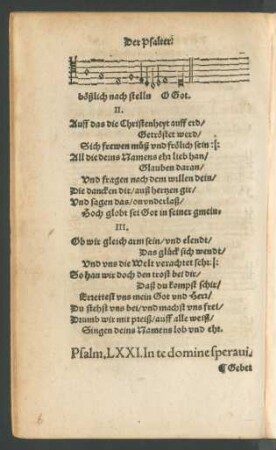 Der Psalter.
bößlich nach stelln O Got.
II.
Auff das die Christenheyt auff erd/
Getröstet werd/
Sich frewen müß vnd frölich sein :|:
All die deins Namens ehr lieb han/
Glauben daran/
Vnd fragen nach dem willen dein/
Die dancken dir/ auß hertzen gir/
Vnd sagen das/ on vnderlaß/
Hoch globt sei Got in seiner gmein.
III.
Ob wir gleich arm sein/ vnd elendt/
Das glück sich wendt/
Vnd vns die Welt verachtet sehr :|:
So han wir doch den trost bei dir/
Daß du kompst schir/
Errettest vns mein Got vnd Herr/
Du stehst vns bei/ vnd machst vns frei/
Drumb wir mit preiß/ auff alle weiß/
Singen deins Namens lob vnd ehr.
Psalm, LXXI. In te domine speraui.
¶ Gebet